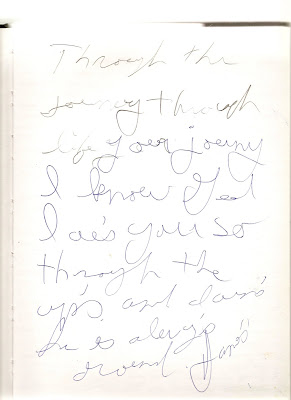 Through the
journey through
life your journy
I know God
loves you so
through the
up's and down's
he is alway's
around.